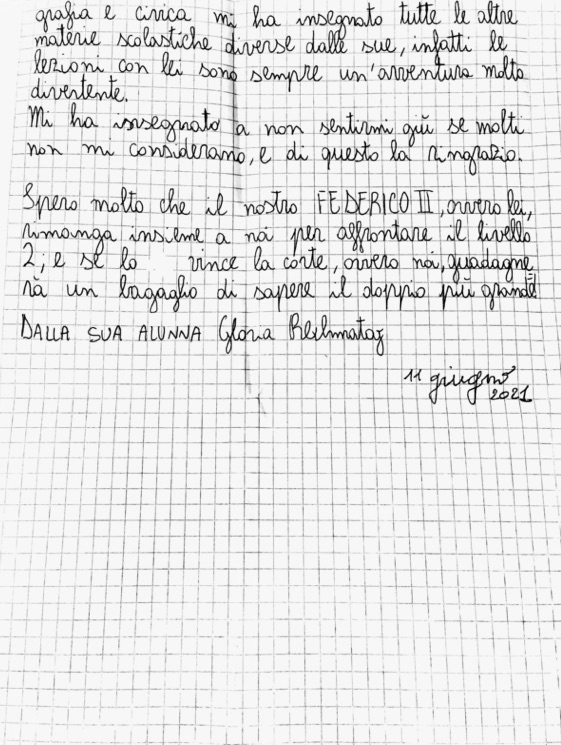 grafia e civica mi ha insegnato tutte le altre
materie scolastiche diverse dalle sue, infatti le
lezioni con lei sono sempre un'avventura molto
divertente.
Mi ha insegnato a non sentirmi giù se molti
non mi considerano, e di questo la ringrazio.
Spero molto che il nostro FEDERICO II, ovvero lei,
rimanga insieme a noi per affrontare il livello
2; e se lo vince la corte, ovvero noi, guadagne
rà un bagaglio di sapere il doppio più grande
DALLA SUA ALUNNA Gloria
11 giugno
2021